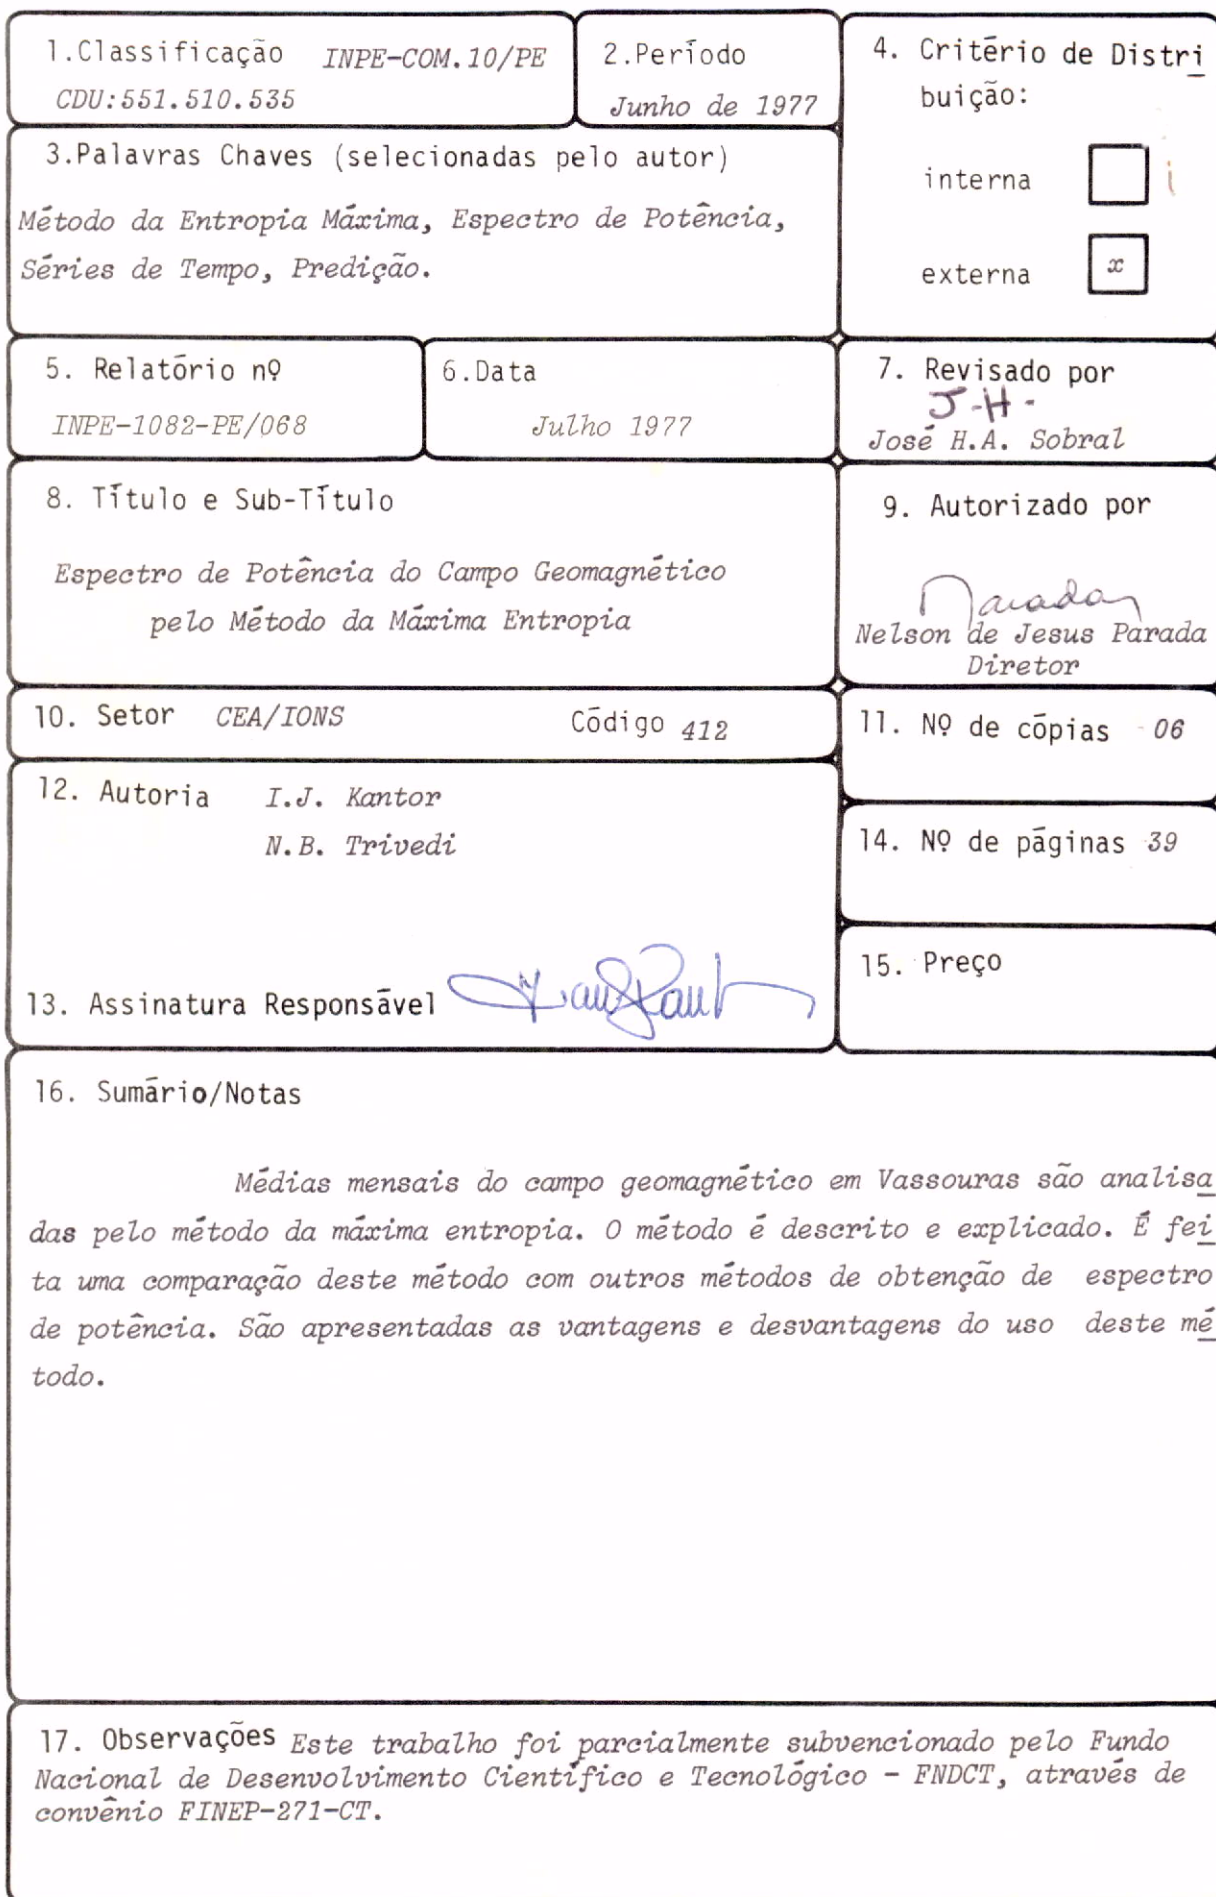 1.Classificação INPE-COM.10/PE
CDU:551.510.535
2.Período
Junho de 1977
4. Critério de Distri
buição:
interna
externa x
3.Palavras Chaves (selecionadas pelo autor)
Método da Entropia Máxima, Espectro de Potência,
Séries de Tempo, Predição.
5. Relatório nº
INPE-1082-PE/068
6.Data
Julho 1977
7. Revisado por
J-H-
José H.A. Sobral
8. Título e Sub-Título
Espectro de Potência do Campo Geomagnético
pelo Método da Máxima Entropia
9. Autorizado por
Parada
Nelson de Jesus Parada
Diretor
10. Setor CEA/IONS Código 412
11. Nº de cópias 06
12. Autoria I.J. Kantor
N.B. Trivedi
14. Nº de páginas 39
13. Assinatura Responsável
15. Preço
16. Sumário/Notas
Médias mensais do campo geomagnético em Vassouras são analisa
das pelo método da máxima entropia. O método é descrito e explicado. É fei
ta uma comparação deste método com outros métodos de obtenção de espectro
de potência. São apresentadas as vantagens e desvantagens do uso deste mé
todo.
17. Observações Este trabalho foi parcialmente subvencionado pelo Fundo
Nacional de Desenvolvimento Científico e Tecnológico - FNDCT, através de
convênio FINEP-271-CT.